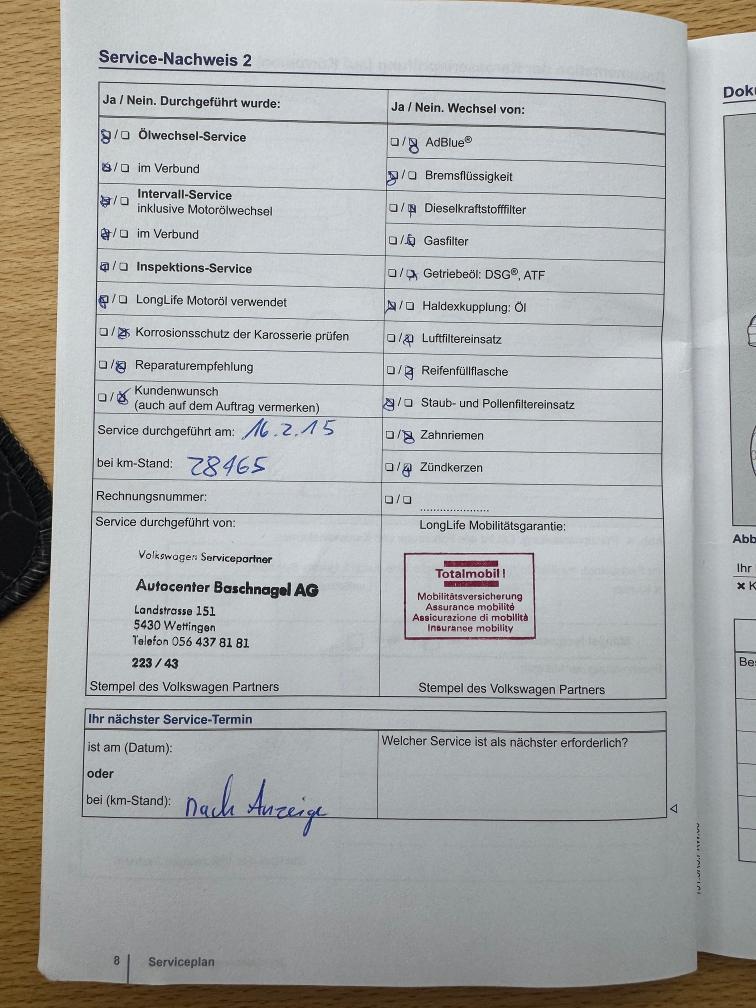 Service-Nachweis 2
Ja / Nein. Durchgeführt wurde:
Ölwechsel-Service
im Verbund
Intervall-Service
inklusive Motorölwechsel
im Verbund
Inspektions-Service
LongLife Motoröl verwendet
Korrosionsschutz der Karosserie prüfen
Reparaturempfehlung
Kundenwunsch
(auch auf dem Auftrag vermerken)
Service durchgeführt am: 16.2.15
bei km-Stand: 28465
Rechnungsnummer:
Service durchgeführt von:
Volkswagen Servicepartner
Autocenter Baschnagel AG
Landstrasse 151
5430 Wettingen
Telefon 056 437 81 81
223 / 43
Stempel des Volkswagen Partners
Ja / Nein. Wechsel von:
AdBlue®
Bremsflüssigkeit
Dieselkraftstofffilter
Gasfilter
Getriebeöl: DSG®, ATF
Haldexkupplung: Öl
Luftfiltereinsatz
Reifenfüllflasche
Staub- und Pollenfiltereinsatz
Zahnriemen
Zündkerzen
LongLife Mobilitätsgarantie:
Totalmobil!
Mobilitätsversicherung
Assurance mobilité
Assicurazione di mobilità
Insurance mobility
Stempel des Volkswagen Partners
Ihr nächster Service-Termin
ist am (Datum):
oder
bei (km-Stand): nach Anzeige
Welcher Service ist als nächster erforderlich?
8 Serviceplan
Abb
Ihr